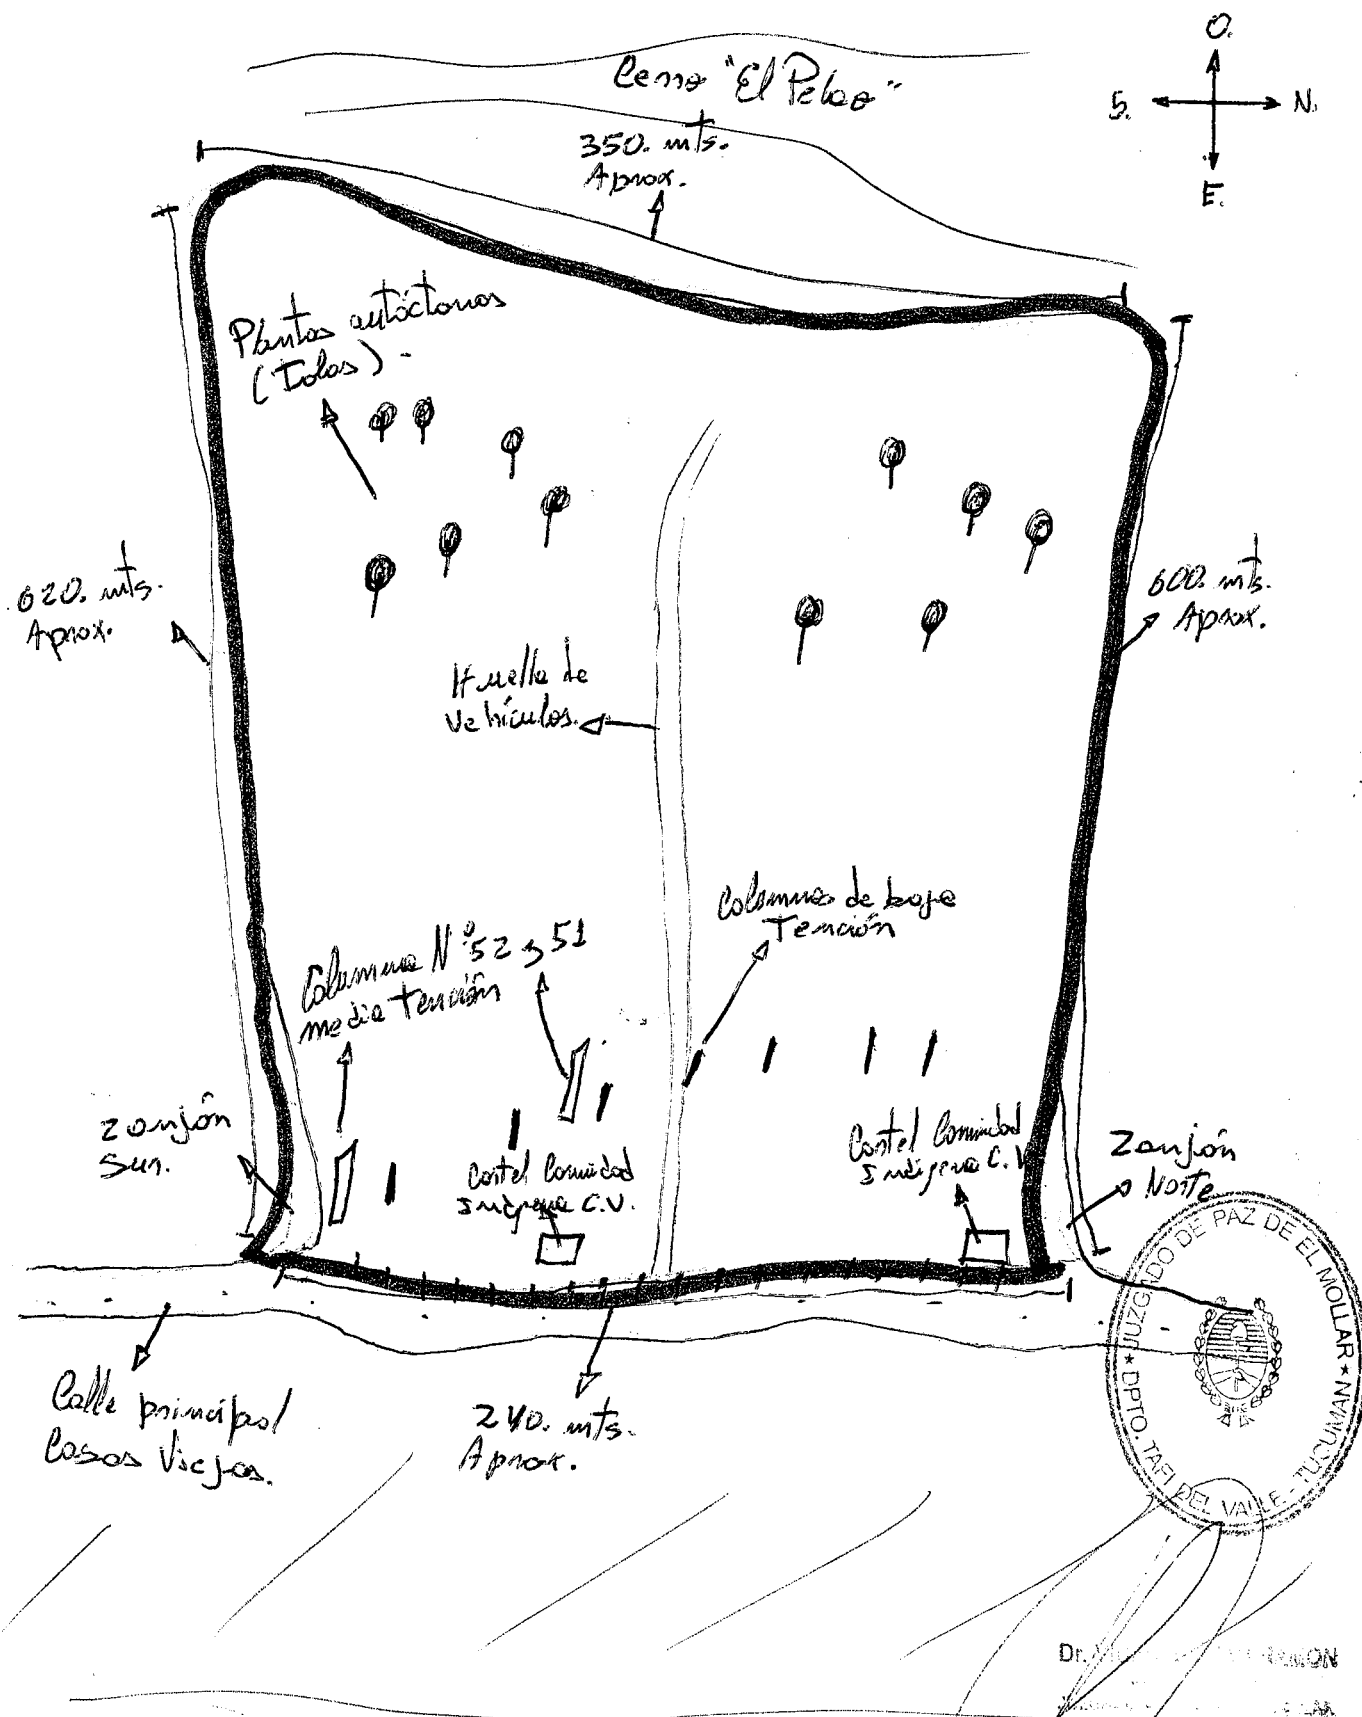 O.
S. N.
E.
Cerro "El Pelao"
350. mts.
Aprox.
Plantas autóctonas
(Tolas).
620. mts.
Aprox.
600. mts.
Aprox.
Huella de
Vehículos.
Columnas de baja
Tención
Columna N° 52 y 51
media Tención
Zanjón
Sur.
Cartel Comunidad
Indígena C.V.
Cartel Comunidad
Indígena C.V.
Zanjón
Norte
Calle principal
Casas Viejas.
240. mts.
Aprox.
JUZGADO DE PAZ DE EL MOLLAR ★ DPTO. TAFI DEL VALLE - TUCUMAN ★
Dr.